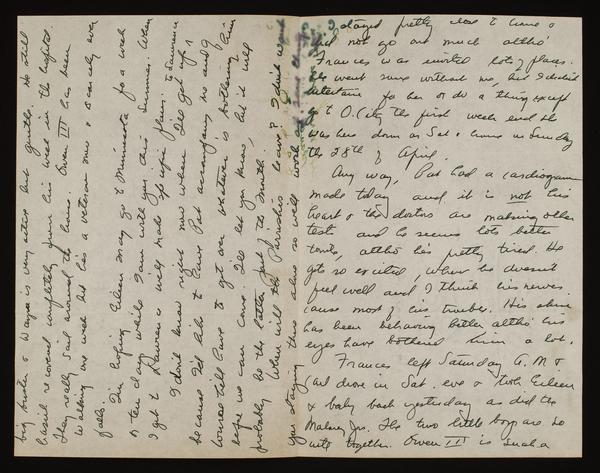 I stayed pretty close to home &
did not go out much altho'
Frances was invited lots of places.
She went some without me, but I didn't
entertain for her or do a thing except
go to O. City the first week end. He
was here down on Sat & home on Sunday
the 28th of April.
Any way, Pat had a cardiogram
made today and it is not his
heart & the doctors are making other
tests and he seems lots better
tonite, altho he's pretty tired. He
gets so excited, when he doesn't
feel well and I think his nerves
cause most of his trouble. His skin
has been behaving better altho his
eyes have bothered him a lot.
Frances left Saturday A.M. &
Carl drove in Sat. eve & took Eileen
& baby back yesterday as did the
Maloney Jrs. The two little boys are so
cute together. Owen III is such a
big buster & Wayne is very active but gentle. He still
hasn't recovered completely from his week in the hospital.
They really sail around the house. Owen III has been
walking one week but he's a veteran now & scarcely ever
falls.
I'm hoping Eileen may go to Minnesota for a week
or ten days while I am with you this Summer. When
I get to Lawrence will make specific plans. to Lawrence
I don't know right now when I'll get up
because I'd like to have Pat accompany me and of
course he'll have to get over whatever is bothering him
before we can come. I'll let you know, but it will
probably be the latter part of the month.
When will the leave? I didn't want
you staying there alone so will